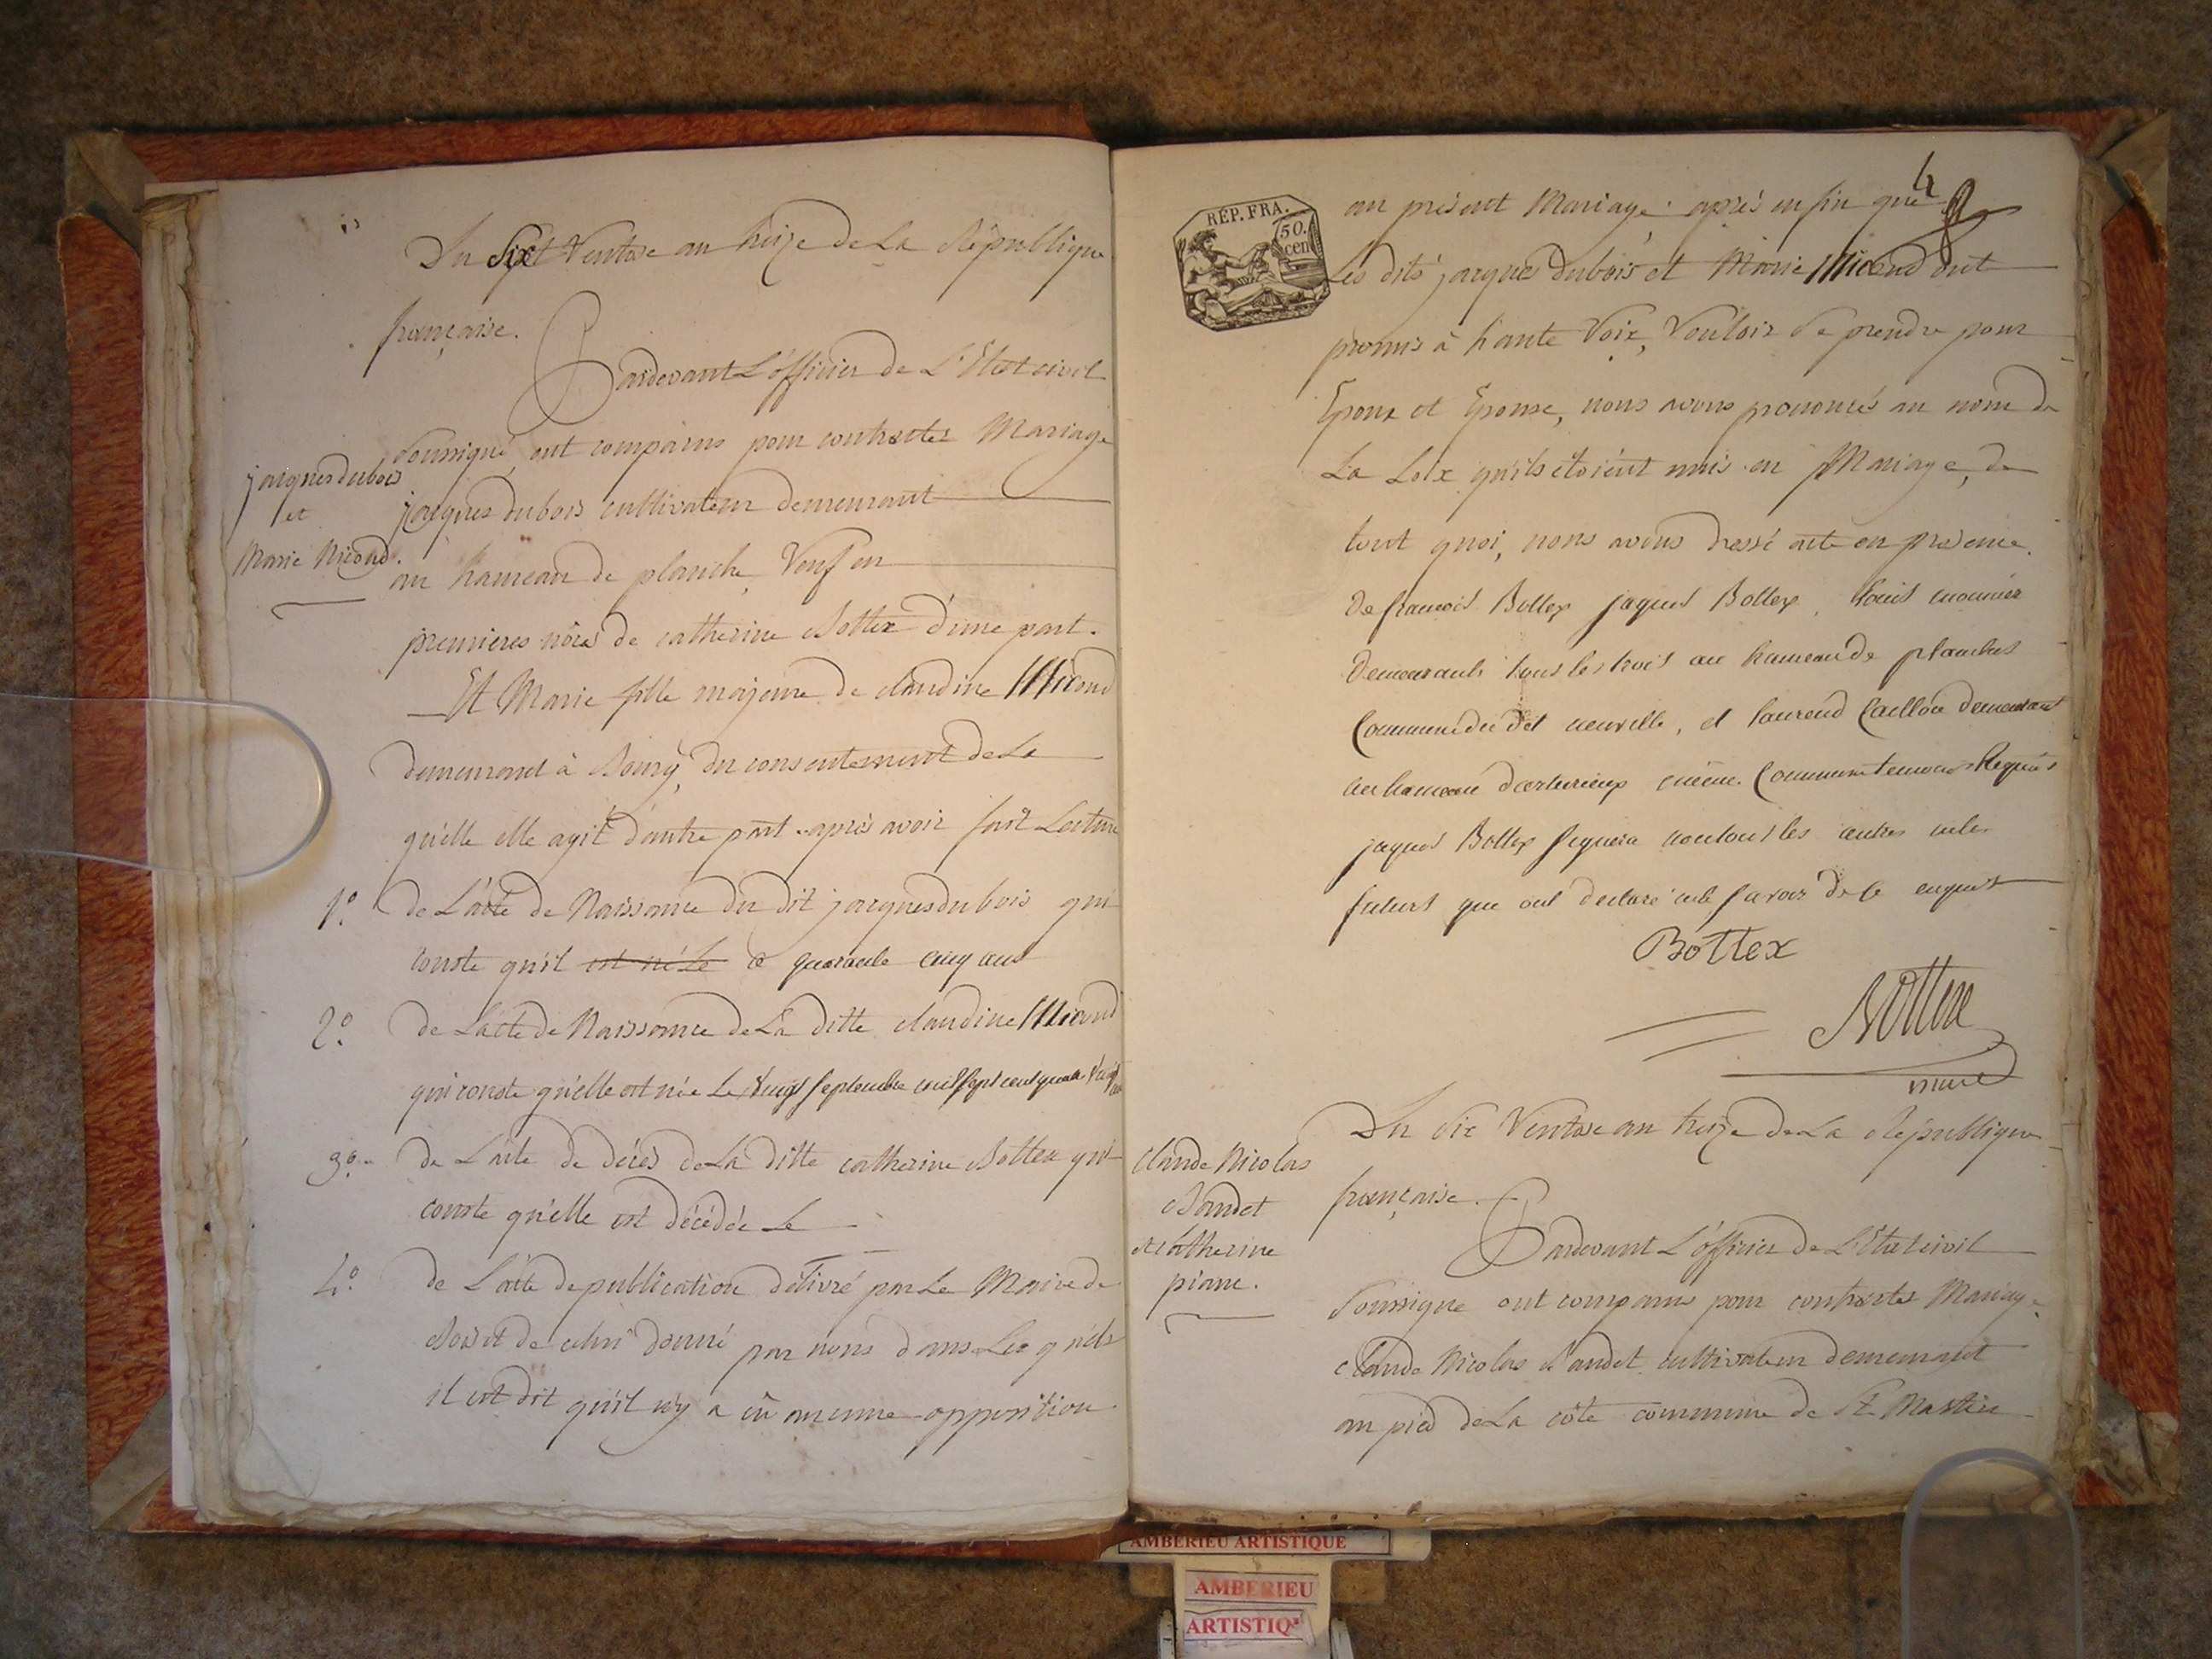 Du Sixt Ventose an treize de La République
française.
Pardevant L'officier de L'Etat civil
Soussigné, ont comparus pour contracter Mariage
jacques dubois
et
Marie Micond.
jacques dubois cultivateur demeurant
au hameau de planche, Veuf en
premieres nôces de catherine Bottex d'une part.
Et Marie fille majeure de claudine Micond
demeurant à Bourg, du consentement de La
qu'elle elle agit d'autre part. après avoir fait Lecture
1º. de L'acte de Naissance du dit jacques dubois qui
conste qu'il est né Le a quarante cinq ans
2º. de L'acte de Naissance de La ditte claudine Micond
qui conste qu'elle est née Le Vingt septembre mil sept cent quatre Vingt
3º. de L'acte de décès de La ditte catherine Bottex qui
conste qu'elle est décédée Le
4º. de L'acte de publication délivré par Le Maire de
et de celui donné par nous dans Les quels
il est dit qu'il n'y a eû aucunne opposition
4
RÉP. FRA.
50.
cen
au présent Mariage; après enfin que
Les dits jacques dubois et Marie Micond ont
promis à haute Voix, Vouloir Se prendre pour
Epoux et Epouse, nous avons prononcés au nom de
La Loix qu'ils étoient unis en Mariage, de
tout quoi, nous avons dressé acte en presence
de francois Bottex jaques Bottex, Louis monnier
demeurants tous les trois au hameau de planches
Commune du dit neuville, et laurend Caillou demeurant
au hameau même Commune temoins Requis
jaques Bottex signera non tous les autres
futurs que ont declaré ne le savoir de ce enquis
Bottex
Bottex
maire
Du dix Ventose an treize de La République
française.
Claude Nicolas
Baudet
et catherine
piane.
Pardevant L'officier de L'Etat civil
Soussigné ont comparus pour contracter Mariage
claude Nicolas Baudet cultivateur demeurant
au pied de La côte commune de St Martin
AMBERIEU ARTISTIQUE
AMBERIEU
ARTISTIQ